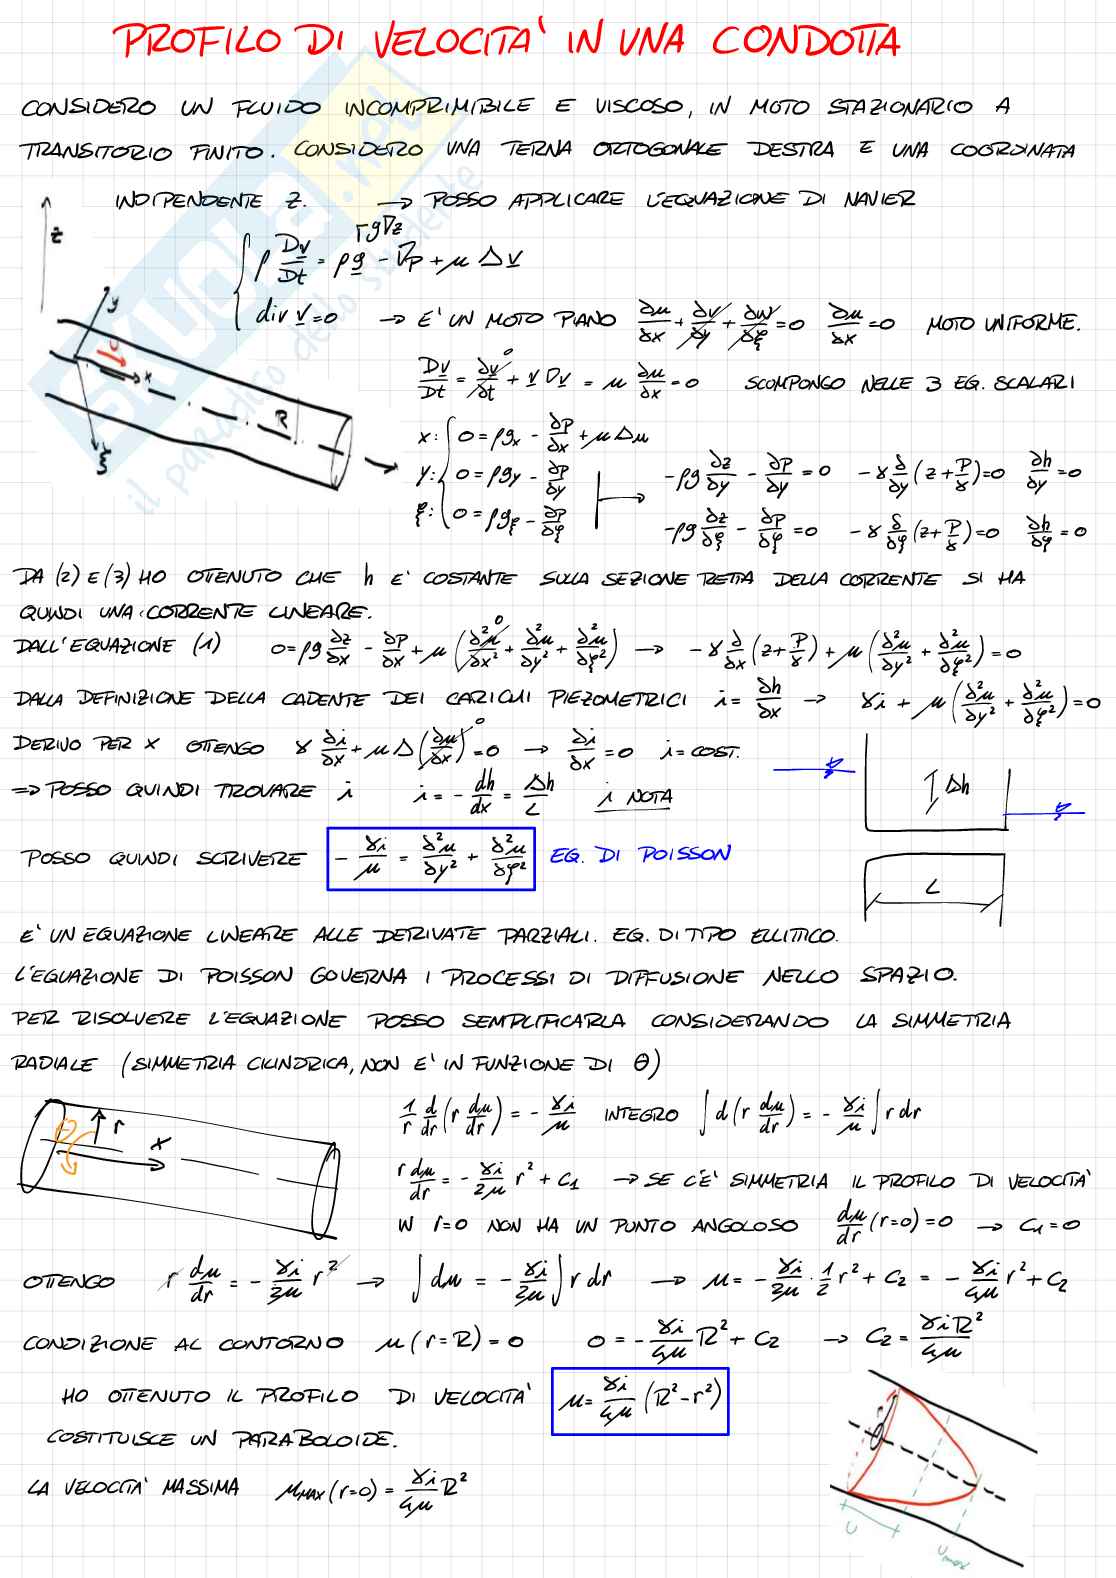 PROFILO DI VELOCITA' IN UNA CONDOTTA
CONSIDERO UN FLUIDO INCOMPRIMIBILE E VISCOSO, IN MOTO STAZIONARIO A
TRANSITORIO FINITO. CONSIDERO UNA TERNA ORTOGONALE DESTRA E UNA COORDINATA
INDIPENDENTE Z. → POSSO APPLICARE L'EQUAZIONE DI NAVIER
ρ Dv/Dt = ρg - ∇p + μ Δv
div v = 0 → E' UN MOTO PIANO ∂u/∂x + ∂v/∂y + ∂w/∂ξ = 0 ∂u/∂x = 0 MOTO UNIFORME.
Dv/Dt = ∂v/∂t + v ∇v = u ∂u/∂x = 0 SCOMPONGO NELLE 3 EQ. SCALARI
x: 0 = ρgx - ∂p/∂x + μ Δu
y: 0 = ρgy - ∂p/∂y → -ρg ∂z/∂y - ∂p/∂y = 0 -γ ∂/∂y (z + p/γ) = 0 ∂h/∂y = 0
ξ: 0 = ρgξ - ∂p/∂ξ -ρg ∂z/∂ξ - ∂p/∂ξ = 0 -γ ∂/∂ξ (z + p/γ) = 0 ∂h/∂ξ = 0
z
y
x
R
ξ
DA (2) E (3) HO OTTENUTO CHE h E' COSTANTE SULLA SEZIONE RETTA DELLA CORRENTE SI HA
QUINDI UNA CORRENTE LINEARE.
DALL'EQUAZIONE (1) 0 = ρg ∂z/∂x - ∂p/∂x + μ (∂²u/∂x² + ∂²u/∂y² + ∂²u/∂ξ²) → -γ ∂/∂x (z + p/γ) + μ (∂²u/∂y² + ∂²u/∂ξ²) = 0
DALLA DEFINIZIONE DELLA CADENTE DEI CARICHI PIEZOMETRICI i = ∂h/∂x → γi + μ (∂²u/∂y² + ∂²u/∂ξ²) = 0
DERIVO PER X OTTENGO γ ∂i/∂x + μ Δ (∂u/∂x) = 0 → ∂i/∂x = 0 i = COST.
⇒ POSSO QUINDI TROVARE i i = - dh/dx = Δh/L i NOTA
Δh
POSSO QUINDI SCRIVERE - γi/μ = ∂²u/∂y² + ∂²u/∂ξ² EQ. DI POISSON
L
E' UN EQUAZIONE LINEARE ALLE DERIVATE PARZIALI. EQ. DI TIPO ELLITTICO.
L'EQUAZIONE DI POISSON GOVERNA I PROCESSI DI DIFFUSIONE NELLO SPAZIO.
PER RISOLVERE L'EQUAZIONE POSSO SEMPLIFICARLA CONSIDERANDO LA SIMMETRIA
RADIALE (SIMMETRIA CILINDRICA, NON E' IN FUNZIONE DI θ)
θ r x
1/r d/dr (r du/dr) = - γi/μ INTEGRO ∫ d (r du/dr) = - γi/μ ∫ r dr
r du/dr = - γi/2μ r² + C1 → SE C'E' SIMMETRIA IL PROFILO DI VELOCITA'
IN r=0 NON HA UN PUNTO ANGOLOSO du/dr (r=0) = 0 → C1 = 0
OTTENGO r du/dr = - γi/2μ r² → ∫ du = - γi/2μ ∫ r dr → u = - γi/2μ · 1/2 r² + C2 = - γi/4μ r² + C2
CONDIZIONE AL CONTORNO u (r=R) = 0 0 = - γi/4μ R² + C2 → C2 = γiR²/4μ
HO OTTENUTO IL PROFILO DI VELOCITA' u = γi/4μ (R² - r²)
COSTITUISCE UN PARABOLOIDE.
LA VELOCITA' MASSIMA uMAX (r=0) = γi/4μ R²
U
Umax
SKUOLA.net
il paradiso dello studente